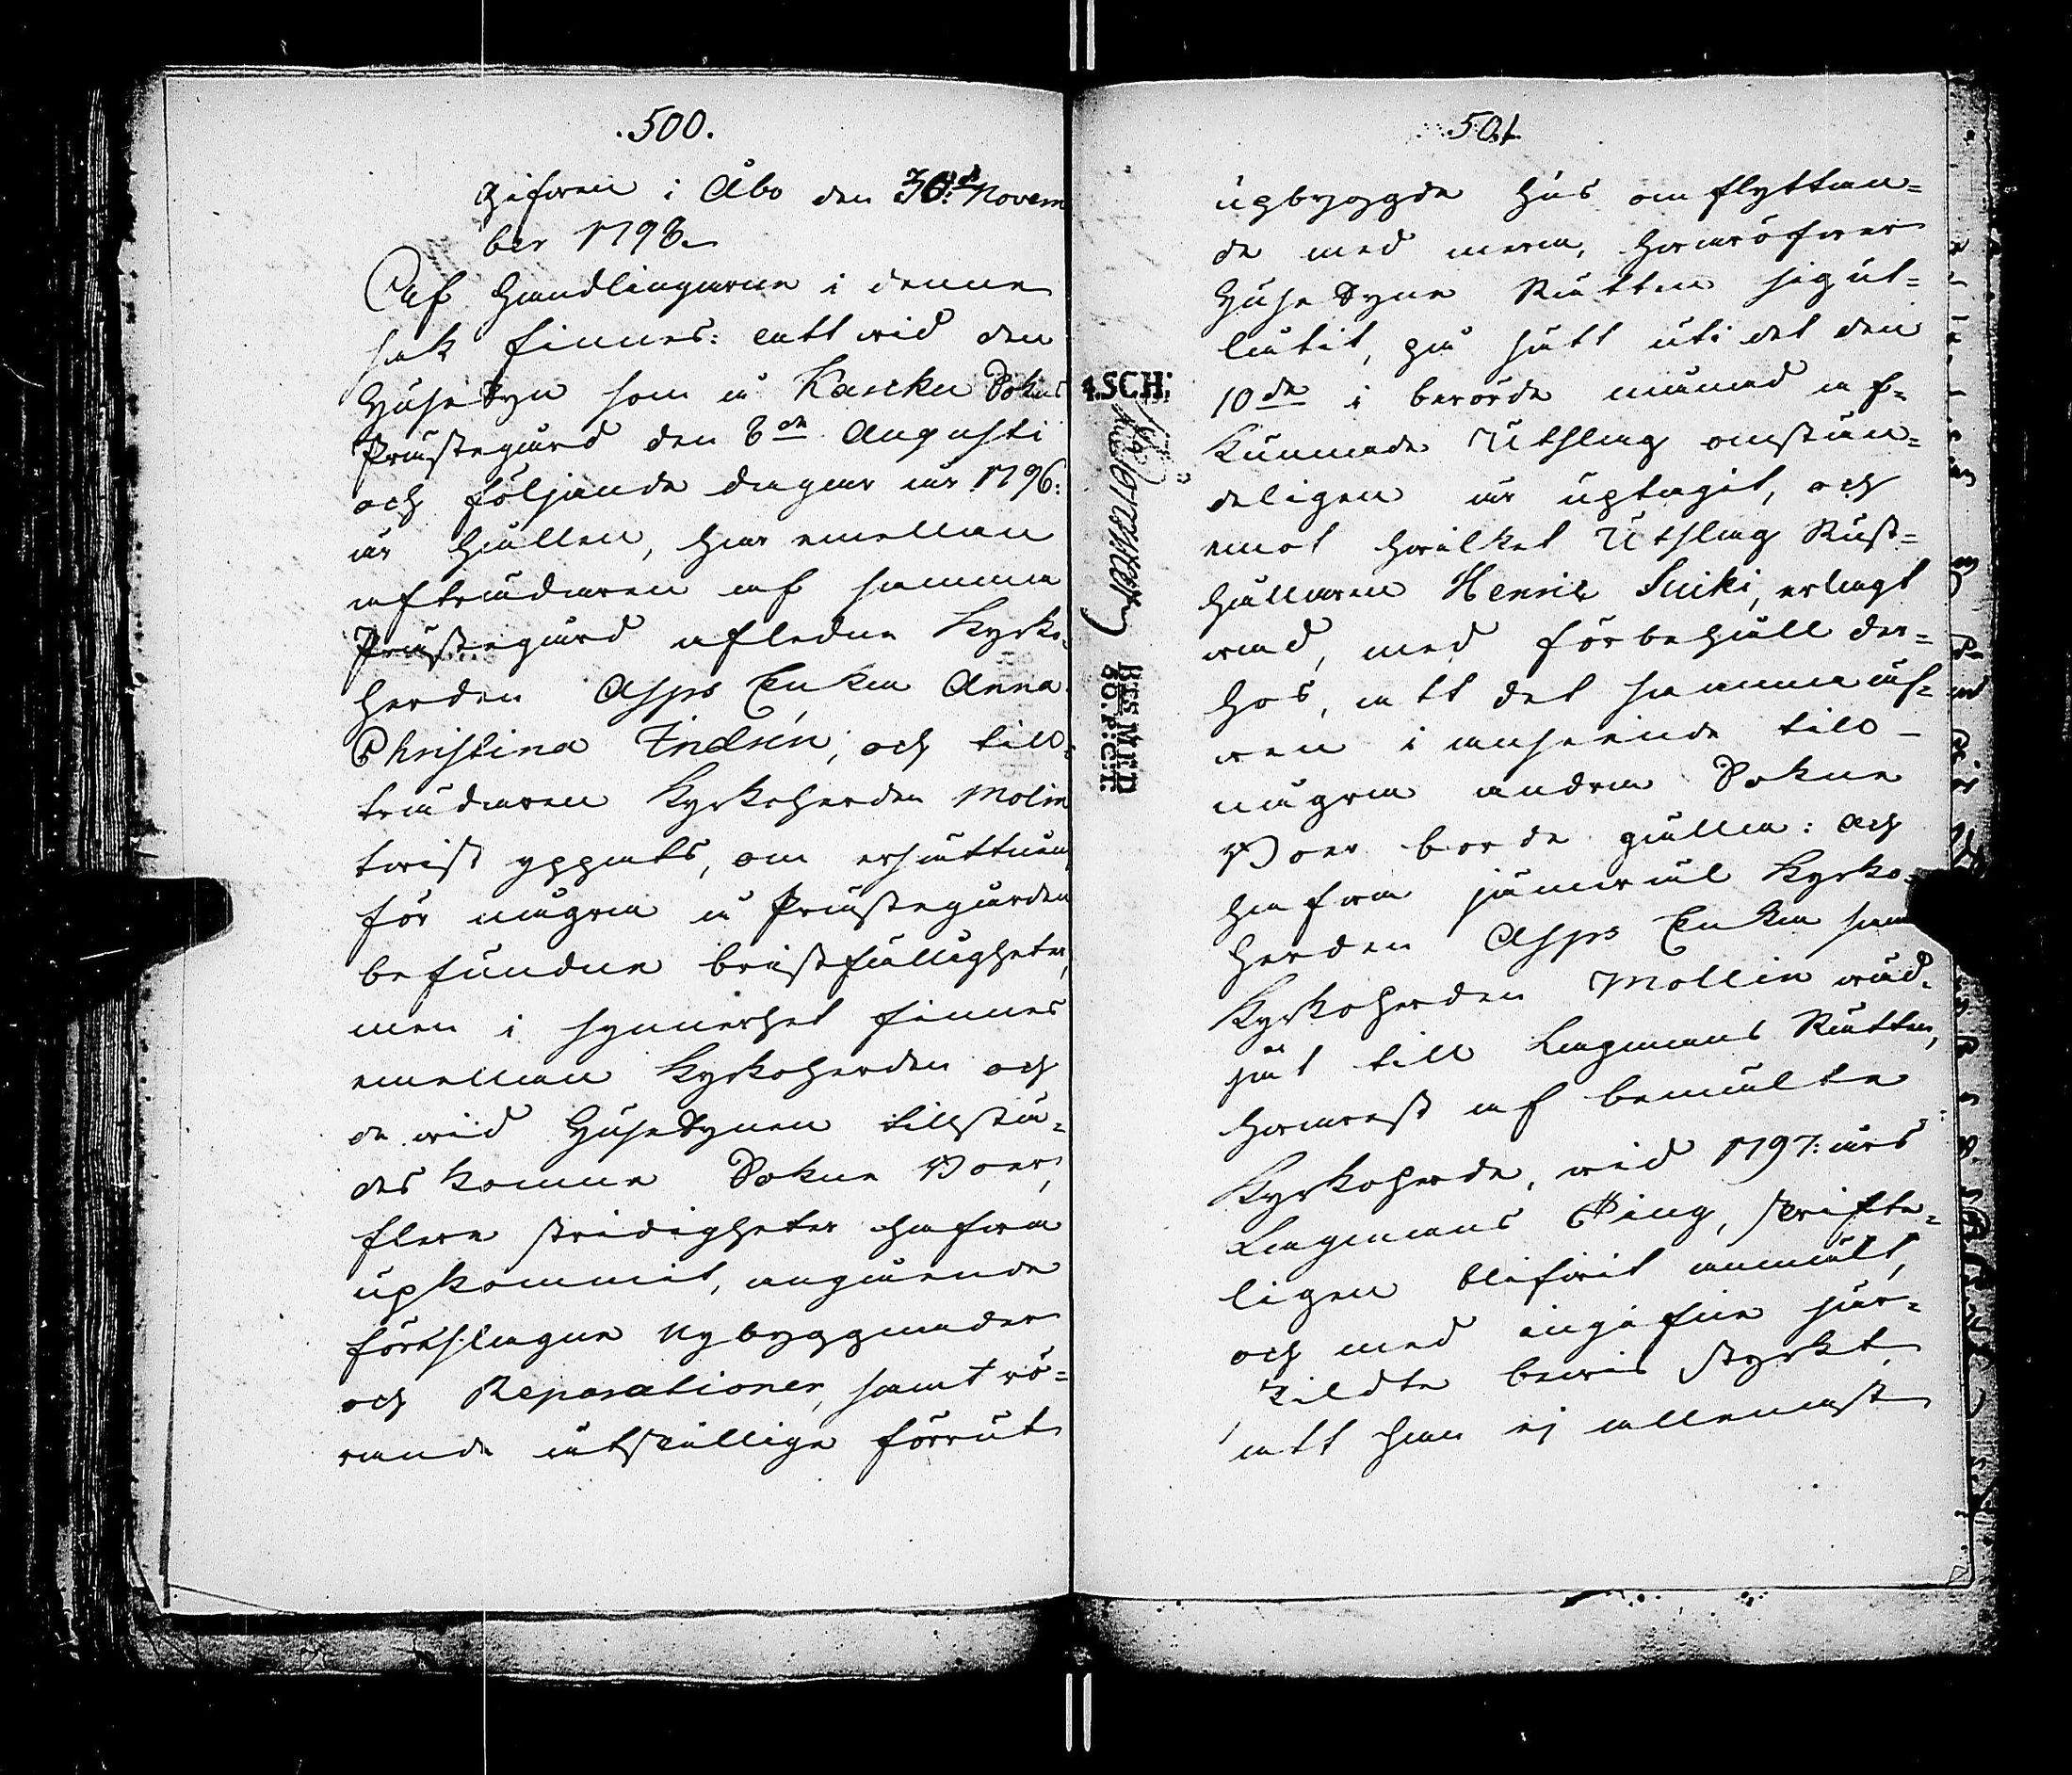 .500.
Gifwen i Åbo den 30:de Novem
ber 1798.
Af Handlingarne i denne
sak finnes: att wid den
HuseSyn som å Karcku Sokns
Prästegård den 8de Augusti
och följande dagar år 1796:
är hållen, har emellan
afträdaren af samma
Prästegård afledne Kyrko-
herden Asps Enka Anna
Christina Indrén, och till-
trädaren Kyrkoherden Molin
twist yppats, om ersättning
för några å Prästegården
befundne bristfälligheter,
men i synnerhet finnes
emellan Kyrkoherden och
de wid HuseSynen tillstä-
des komne Sokne Boer,
flere stridigheter hafwa
upkommit, angående
förreslagne Nybyggnader
och Reparationer, samt rö-
rande åtskillige förrut
501.
upbyggde Hus omflyttan-
de med mera, hwaröfwer
HuseSyne Rätten sig ut-
låtit, på sätt uti det den
10de i berörde månad af-
kunnade Utslag omstän-
deligen är uptagit, och
emot hwilket Utslag Rust-
hållaren Henric Suiki, erlagt
wad, med förbehåll der-
hos, att det samma äf-
wen i anseende till
några andra Sokne
Boer borde gälla: och
hafwa jämwäl Kyrko-
herden Asps Enka samt
Kyrkoherden Mollin wäd-
jat till Lagmans Rätten,
hwarest af bemälte
Kyrkoherde, wid 1797: års
Lagmans Ting, skrifte-
ligen blifwit anmält,
och med ingifne sär-
skildte bewis styrkt,
att han ej allenast
4.SCH: